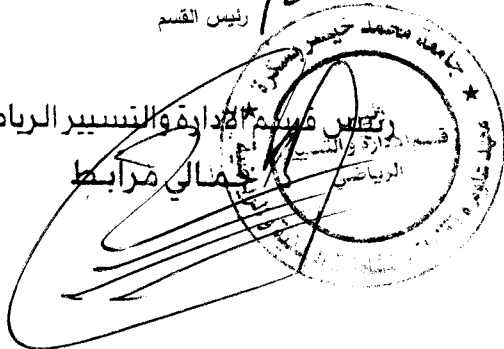 رئيس القسم
رئيس قسم الادارة والتسيير الرياضي
د. جمالي مرابط
جامعة محمد خيضر بسكرة
قسم الادارة و التسيير
الرياضي
معهد علوم و